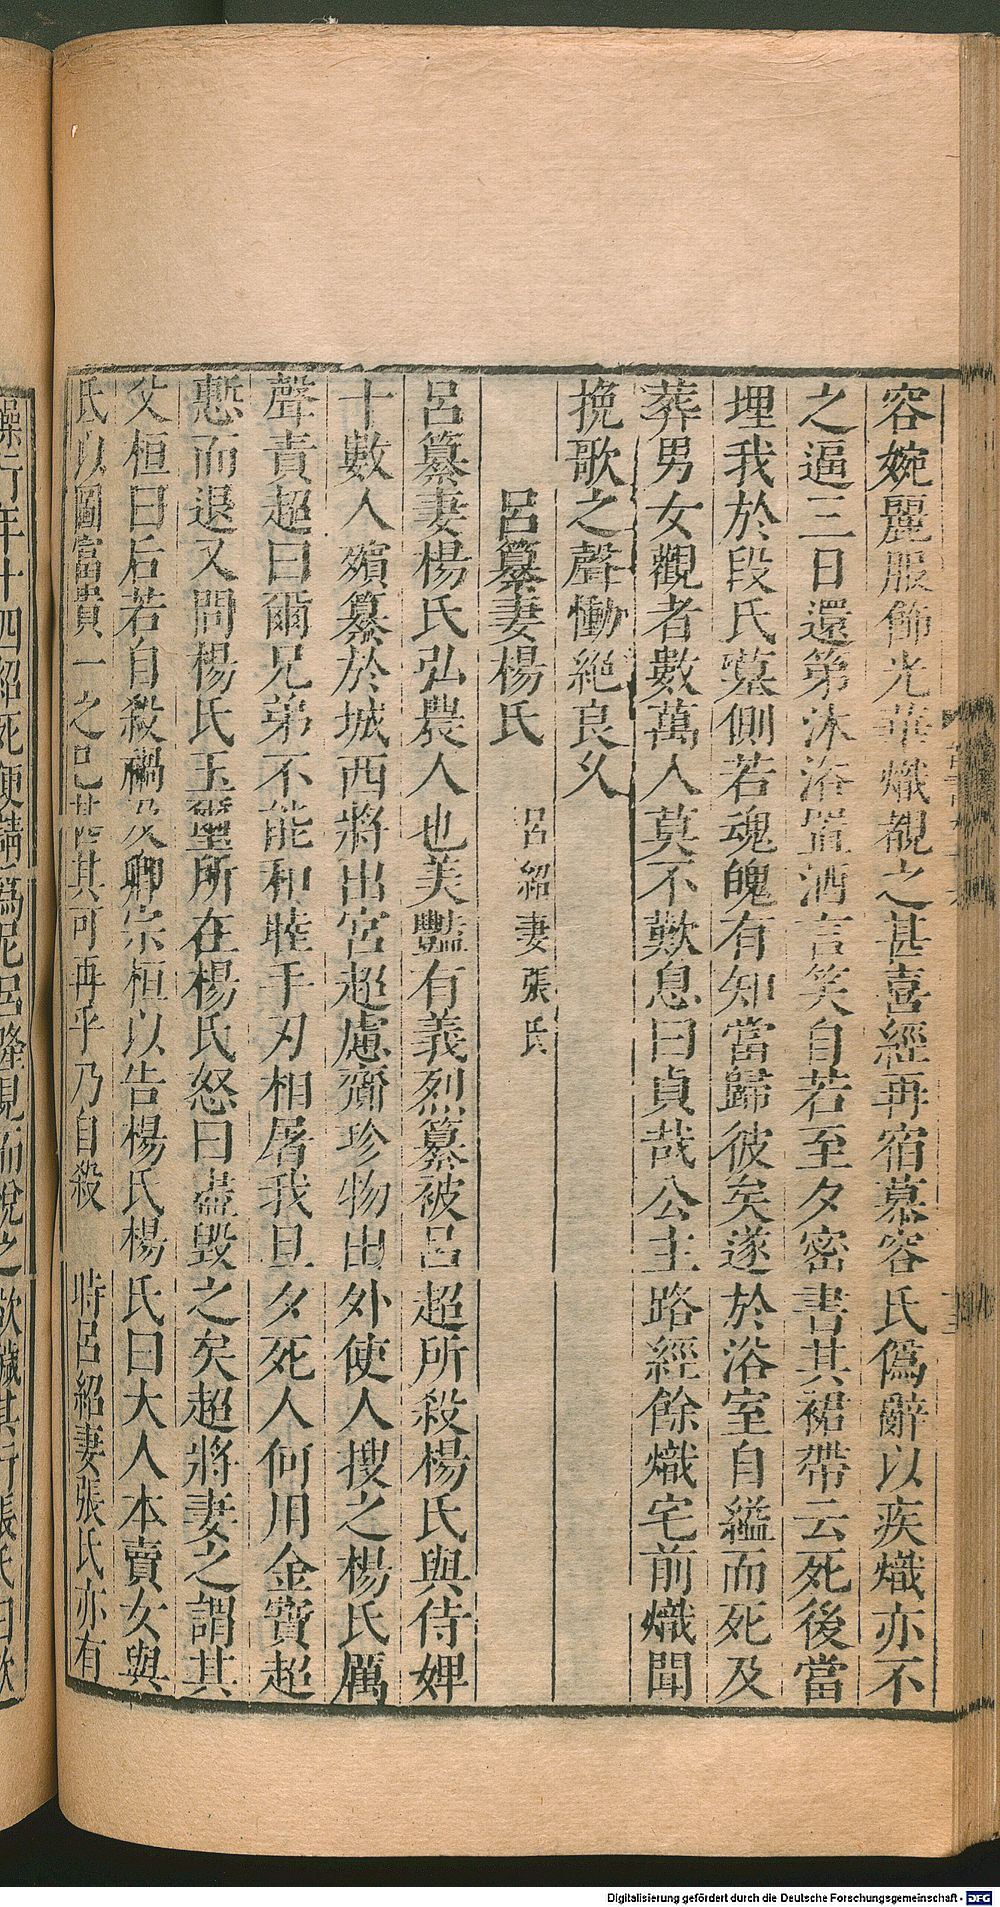 容婉麗服飾光華熾覩之甚喜經再宿慕容氏僞辭以疾熾亦不
之逼三日還第沐浴置酒言笑自若至夕密書其裙帶云死後當
埋我於段氏墓側若魂魄有知當歸彼矣遂於浴室自縊而死及
葬男女觀者數萬人莫不歎息曰貞哉公主路經餘熾宅前熾聞
挽歌之聲慟絶良久
呂纂妻楊氏 呂紹妻張氏
呂纂妻楊氏弘農人也美豔有義烈纂被呂超所殺楊氏與侍婢
十數人殯纂於城西將出宮超慮齎珍物出外使人搜之楊氏厲
聲責超曰爾兄弟不能和睦手刃相屠我旦夕死人何用金寶超
慙而退又問楊氏玉璽所在楊氏怒曰盡毀之矣超將妻之謂其
父桓曰后若自殺禍及卿宗桓以告楊氏楊氏曰大人本賣女與
氏以圖富貴一之已甚其可再乎乃自殺 時呂紹妻張氏亦有
操行年十四紹死便請爲尼呂隆見而悅之欲穢其行張氏曰欽
Digitalisierung gefördert durch die Deutsche Forschungsgemeinschaft - DFG